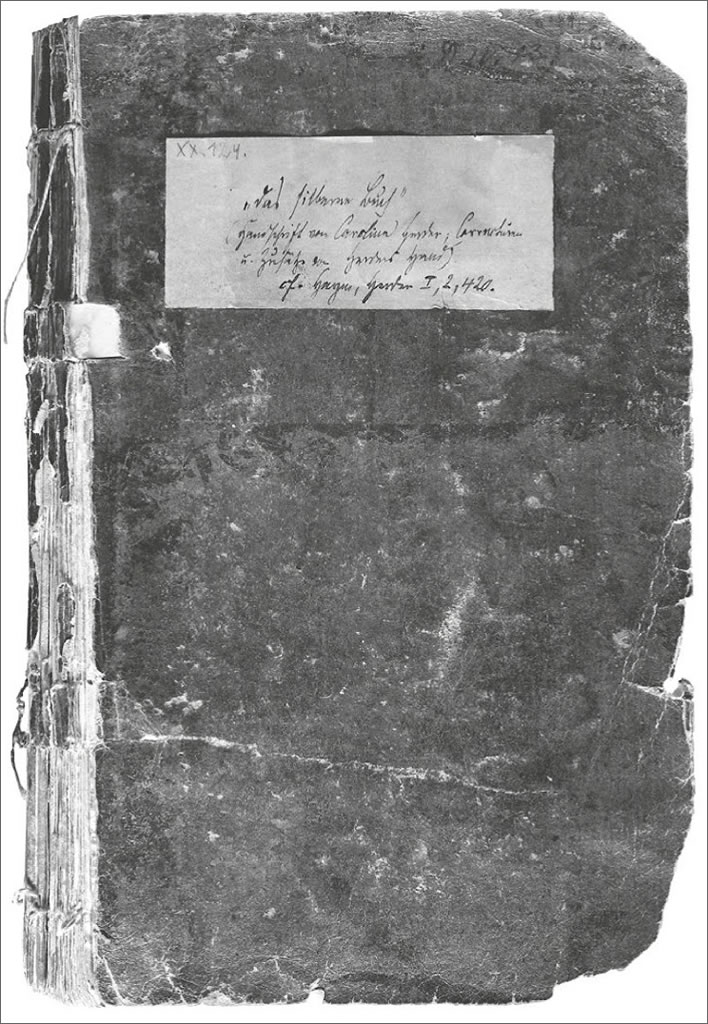 XX. 124.
„das silberne Buch"
(Handschrift von Caroline Herder; Correcturen
u. Zusätze von Herders Hand)
cf. Haym, Herder I, 2, 420.